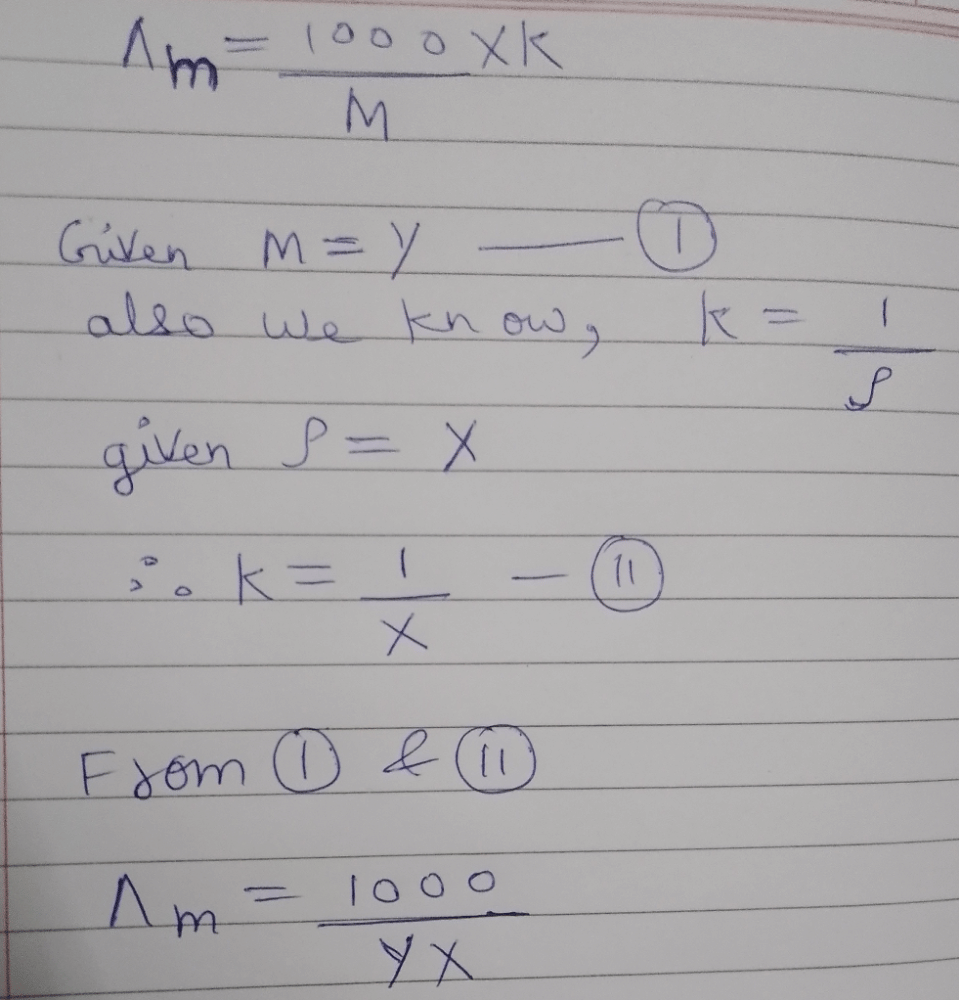 Λm = 1000 × K
M
Given M = Y —— I
also we know, k = 1
ρ
given ρ = X
∴ k = 1 — II
X
From I & II
Λm = 1000
YX